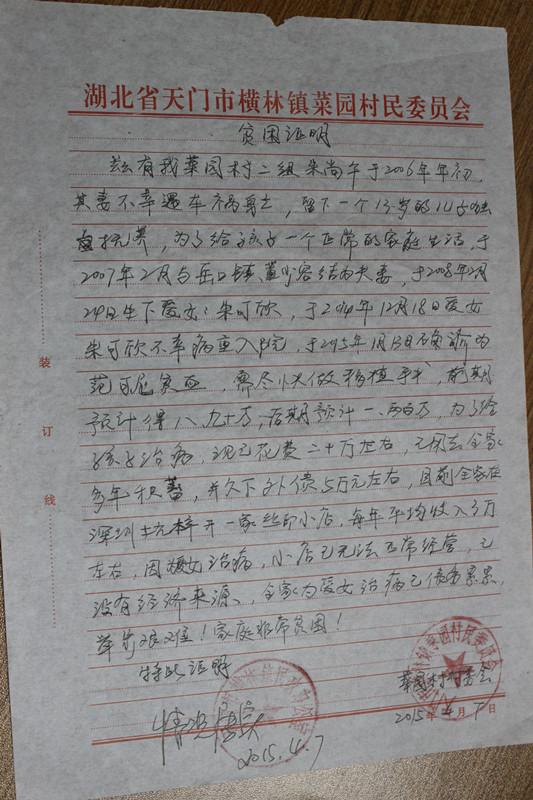 湖北省天门市横林镇菜园村民委员会
贫困证明
兹有我菜园村二组朱尚午于2006年年初,
其妻不幸遇车祸身亡,留下一个13岁的儿子独
自抚养,为了给孩子一个正常的家庭生活,于
2007年2月与岳口镇 容结为夫妻,于2008年2月
24日生下爱女:朱可欣,于2014年12月18日爱女
朱可欣不幸病重入院,于2015年1月13日确诊为
范可尼贫血,需尽快做移植手术,前期
预计得八、九十万,后期预计一、两百万,为了给
孩子治病,现已花费二十万左右,已用去全家
多年积蓄,并欠下外债5万元左右,目前全家在
深圳坑梓开一家丝印小店,每年平均收入3万
左右,因嫒女治病,小店已无法正常经营,已
没有经济来源、全家为爱女治病已债务累累,
举步艰难!家庭非常贫困!
特此证明
菜园村村委会
2015年4月7日
情况属实
2015.4.7
装
订
线